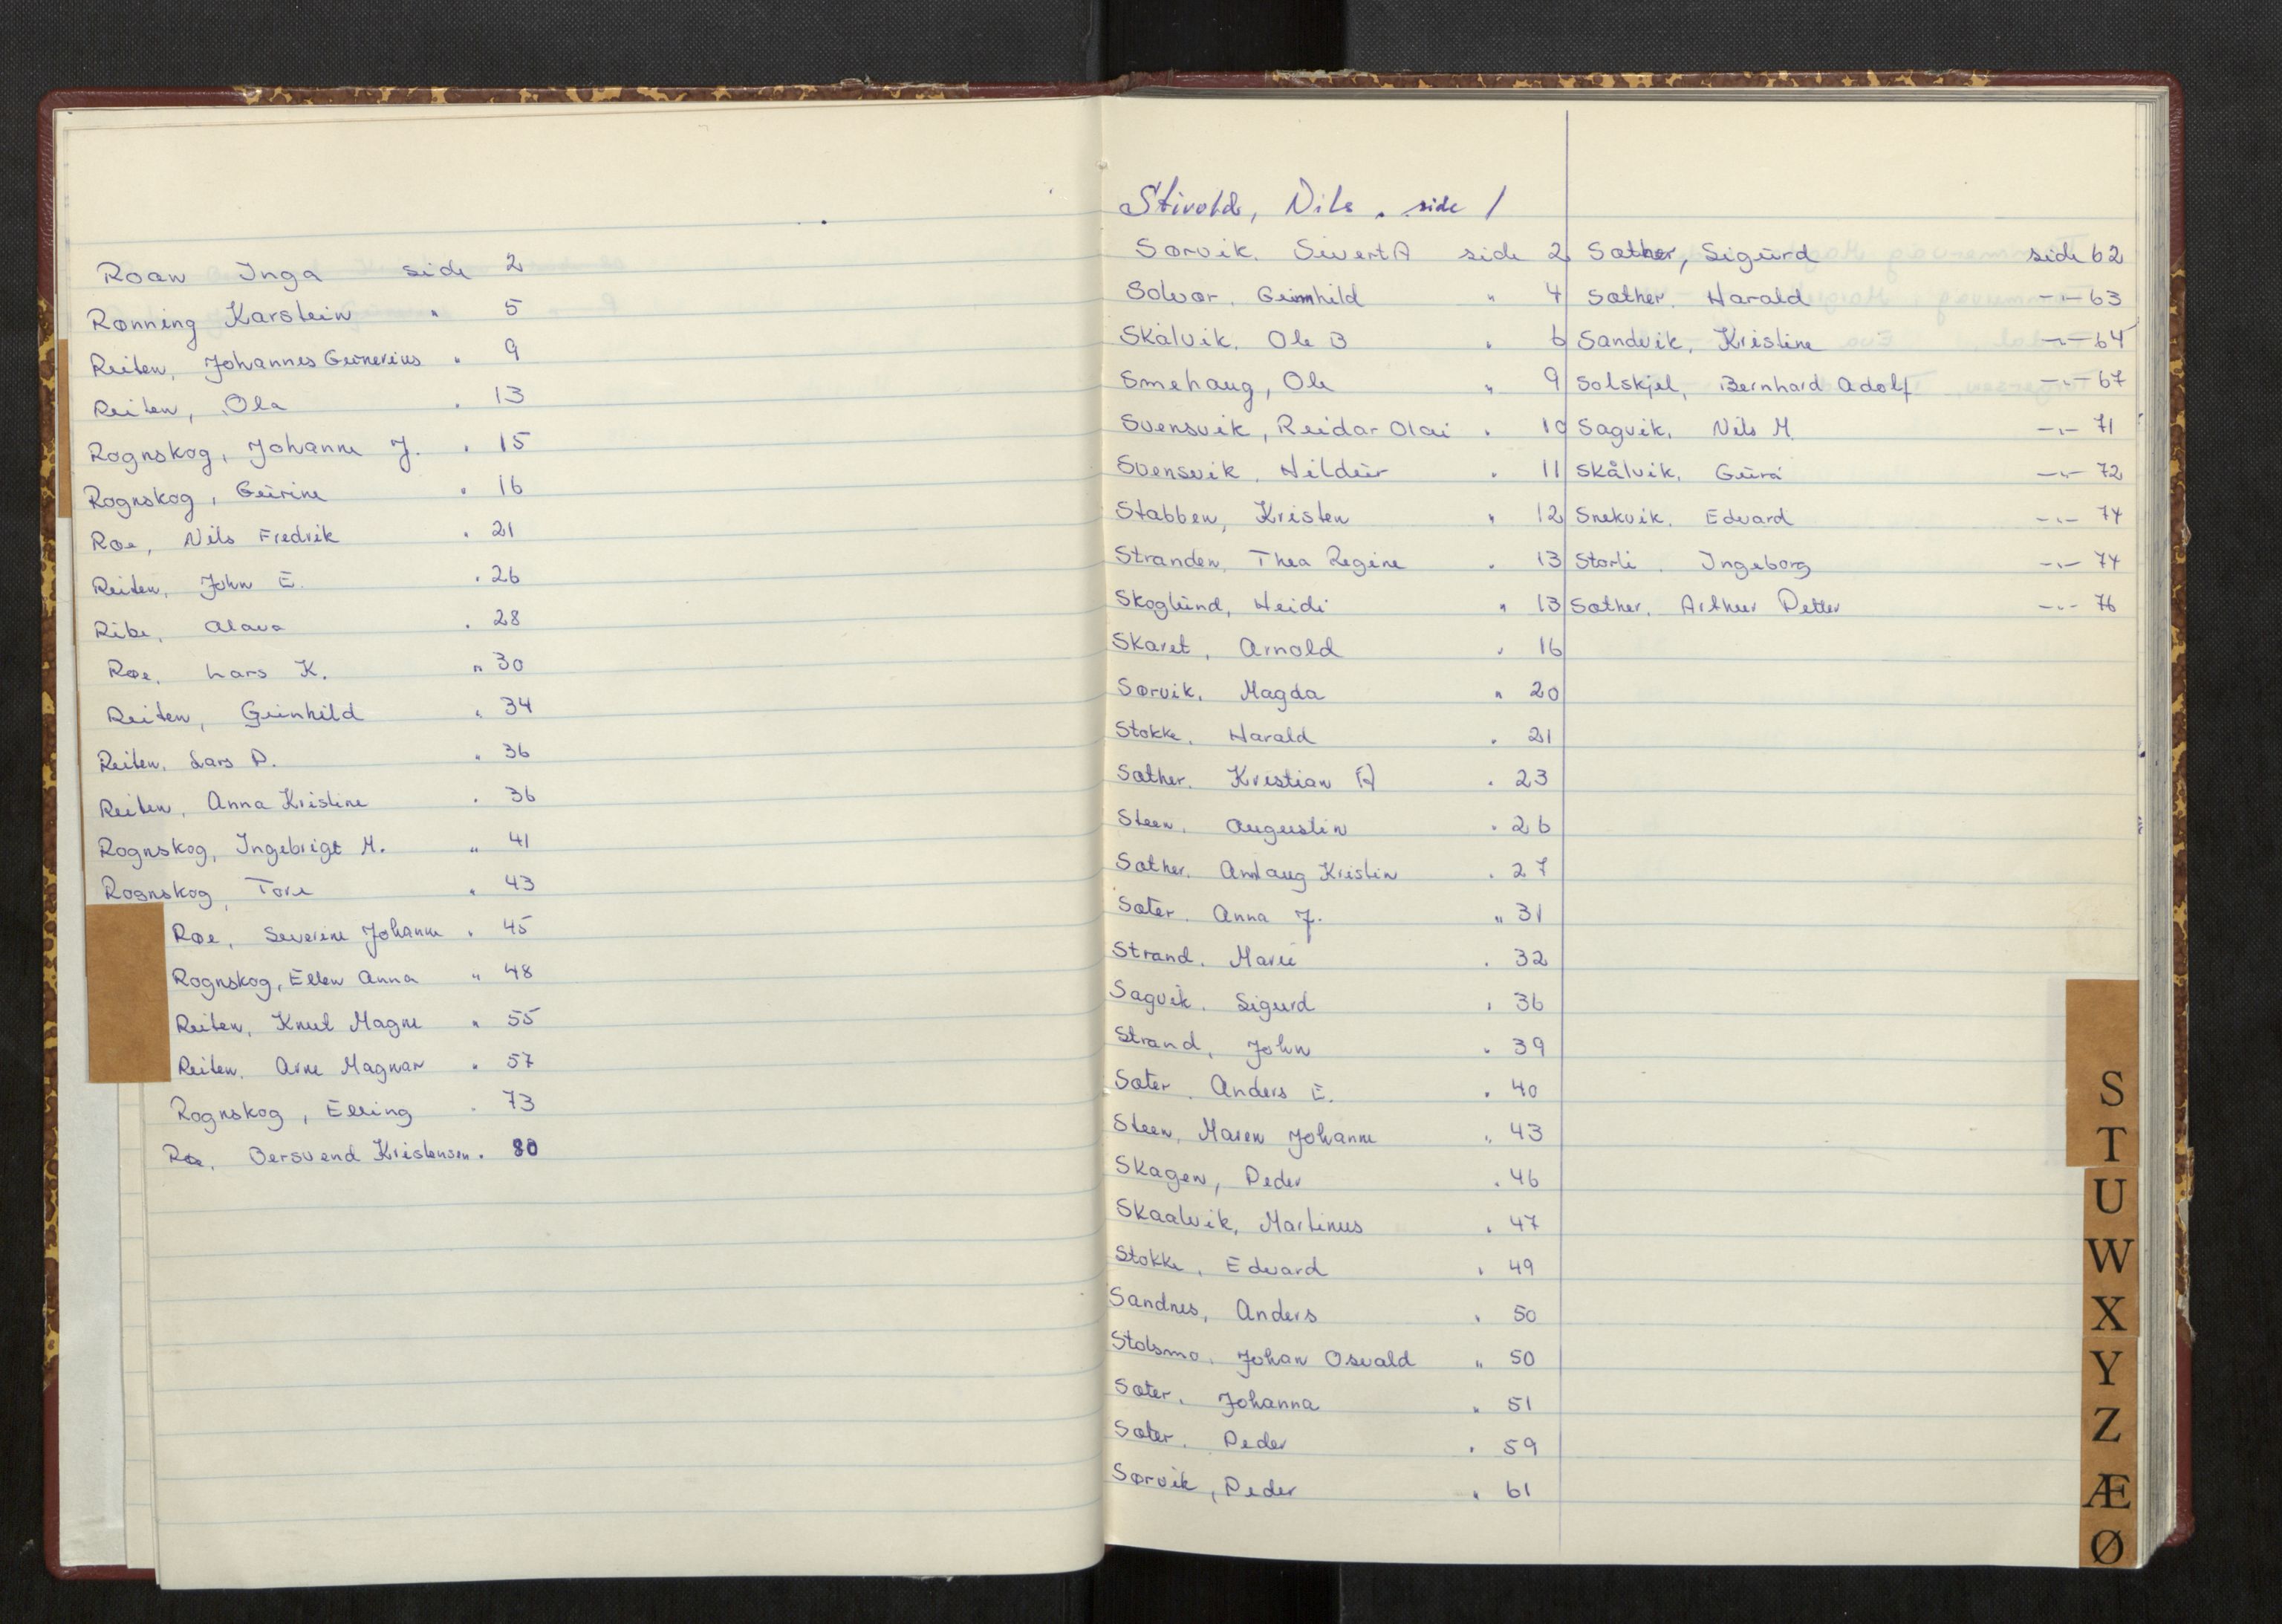 Roaw Inga side 2
Rønning Karstein " 5
Reiten, Johannes Gunerius " 9
Reiten, Ola " 13
Rognskog, Johanne J. " 15
Rognskog, Gurine " 16
Røe, Nils Fredrik " 21
Reiten, John E. " 26
Ribe, Olava " 28
Røe, Lars K. " 30
Reiten, Gunhild " 34
Reiten, Lars P. " 36
Reiten, Anna Kristine " 36
Rognskog, Ingebrigt M. " 41
Rognskog, Tore " 43
Røe, Severine Johanne " 45
Rognskog, Ellen Anna " 48
Reiten, Knut Magne " 55
Reiten, Arne Magnar " 57
Rognskog, Elling " 73
Røe, Bersvend Kristensen " 80
Nils, side 1
Sørvik, Sivert A side 2
Solvær, Gunnhild " 4
Skålvik, Ole B " 6
Smehaug, Ole " 9
Svensvik, Reidar Olai " 10
Svensvik, Hildur " 11
Stabben, Kristen " 12
Stranden, Thea Regine " 13
Skoglund, Heidi " 13
Skaret, Arnold " 16
Sørvik, Magda " 20
Stokke, Harald " 21
Sæther, Kristian A " 23
Steen, Augustin " 26
Sæther, Kristin " 27
Sæter, Anna J. " 31
Strand, Marie " 32
Sagvik, Sigurd " 36
Strand, John " 39
Sæter, Anders E. " 40
Steen, Maren Johanne " 43
Skagen, Peder " 46
Skaalvik, Martinus " 47
Stokke, Edvard " 49
Sandnes, Anders " 50
Stølsmo, Johan Osvald " 50
Sæter, Johanna " 51
Sæter, Peder " 59
Sørvik, Peder " 61
Sæther, Sigurd side 62
Sæther, Harald —"— 63
Sandvik, Kristine —"— 64
Solskjel, Bernhard Adolf —"— 67
Sagvik, Nils M. —"— 71
Skålvik, Guro —"— 72
Snekvik, Edvard —"— 74
Storli, Ingeborg —"— 74
Sæther, Arthur Petter —"— 76
S
T
U
W
X
Y
Z
Æ
Ø